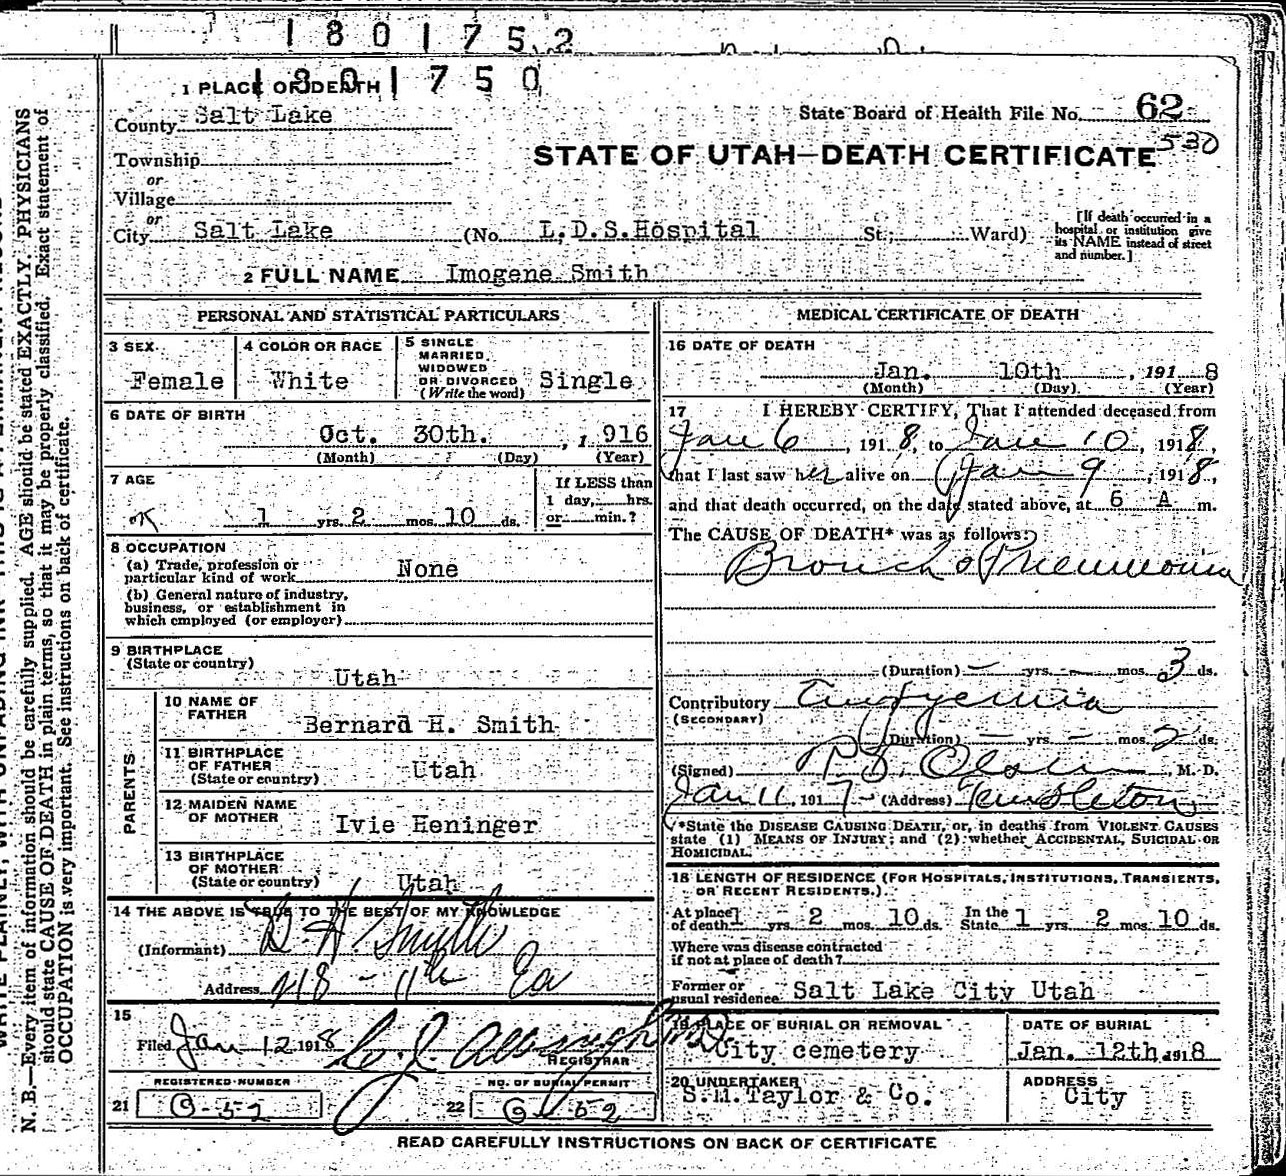 1801752
1801750
1 PLACE OF DEATH
County Salt Lake
State Board of Health File No. 62
530
Township
or
Village
or
STATE OF UTAH—DEATH CERTIFICATE
City Salt Lake (No. L.D.S.Hospital St.; Ward)
[If death occurred in a
hospital or institution give
its NAME instead of street
and number.]
2 FULL NAME Imogene Smith
PERSONAL AND STATISTICAL PARTICULARS
3 SEX
Female
4 COLOR OR RACE
White
5 SINGLE
MARRIED,
WIDOWED
OR DIVORCED
(Write the word)
Single
6 DATE OF BIRTH
Oct. 30th. , 1 916
(Month) (Day) (Year)
7 AGE
1 yrs. 2 mos. 10 ds.
If LESS than
1 day, hrs.
or min.?
8 OCCUPATION
(a) Trade, profession or
particular kind of work None
(b) General nature of industry,
business, or establishment in
which employed (or employer)
9 BIRTHPLACE
(State or country)
Utah
PARENTS
10 NAME OF
FATHER
Bernard H. Smith
11 BIRTHPLACE
OF FATHER
(State or country)
Utah
12 MAIDEN NAME
OF MOTHER
Ivie Heninger
13 BIRTHPLACE
OF MOTHER
(State or country)
Utah
14 THE ABOVE IS TRUE TO THE BEST OF MY KNOWLEDGE
(Informant) B. H. Smith
Address 218 - 11th Ea
15
Filed Jan 12 1918
REGISTRAR
REGISTERED NUMBER
21 G-52
NO. OF BURIAL PERMIT
22 G-52
MEDICAL CERTIFICATE OF DEATH
16 DATE OF DEATH
Jan. 10th , 191 8
(Month) (Day) (Year)
17 I HEREBY CERTIFY, That I attended deceased from
Jan 6, 1918, to Jan 10, 1918,
that I last saw her alive on Jan 9, 1918,
and that death occurred, on the date stated above, at 6 A m.
The CAUSE OF DEATH* was as follows:
Broncho Pneumonia
(Duration) — yrs. — mos. 3 ds.
Contributory Empyemia
(SECONDARY)
(Duration) — yrs. — mos. 2 ds.
(Signed) Olsen, M. D.
Jan 11, 1917 (Address) Templeton
*State the DISEASE CAUSING DEATH, or, in deaths from VIOLENT CAUSES
state (1) MEANS OF INJURY; and (2) whether ACCIDENTAL, SUICIDAL OR
HOMICIDAL.
18 LENGTH OF RESIDENCE (FOR HOSPITALS, INSTITUTIONS, TRANSIENTS,
OR RECENT RESIDENTS.)
At place
of death 1 yrs. 2 mos. 10 ds. In the
State 1 yrs. 2 mos. 10 ds.
Where was disease contracted
if not at place of death?
Former or
usual residence Salt Lake City Utah
19 PLACE OF BURIAL OR REMOVAL
City cemetery
DATE OF BURIAL
Jan. 12th 1918
20 UNDERTAKER
S.M.Taylor & Co.
ADDRESS
City
READ CAREFULLY INSTRUCTIONS ON BACK OF CERTIFICATE
N. B.—Every item of information should be carefully supplied. AGE should be stated EXACTLY. PHYSICIANS
should state CAUSE OF DEATH in plain terms, so that it may be properly classified. Exact statement of
OCCUPATION is very important. See instructions on back of certificate.